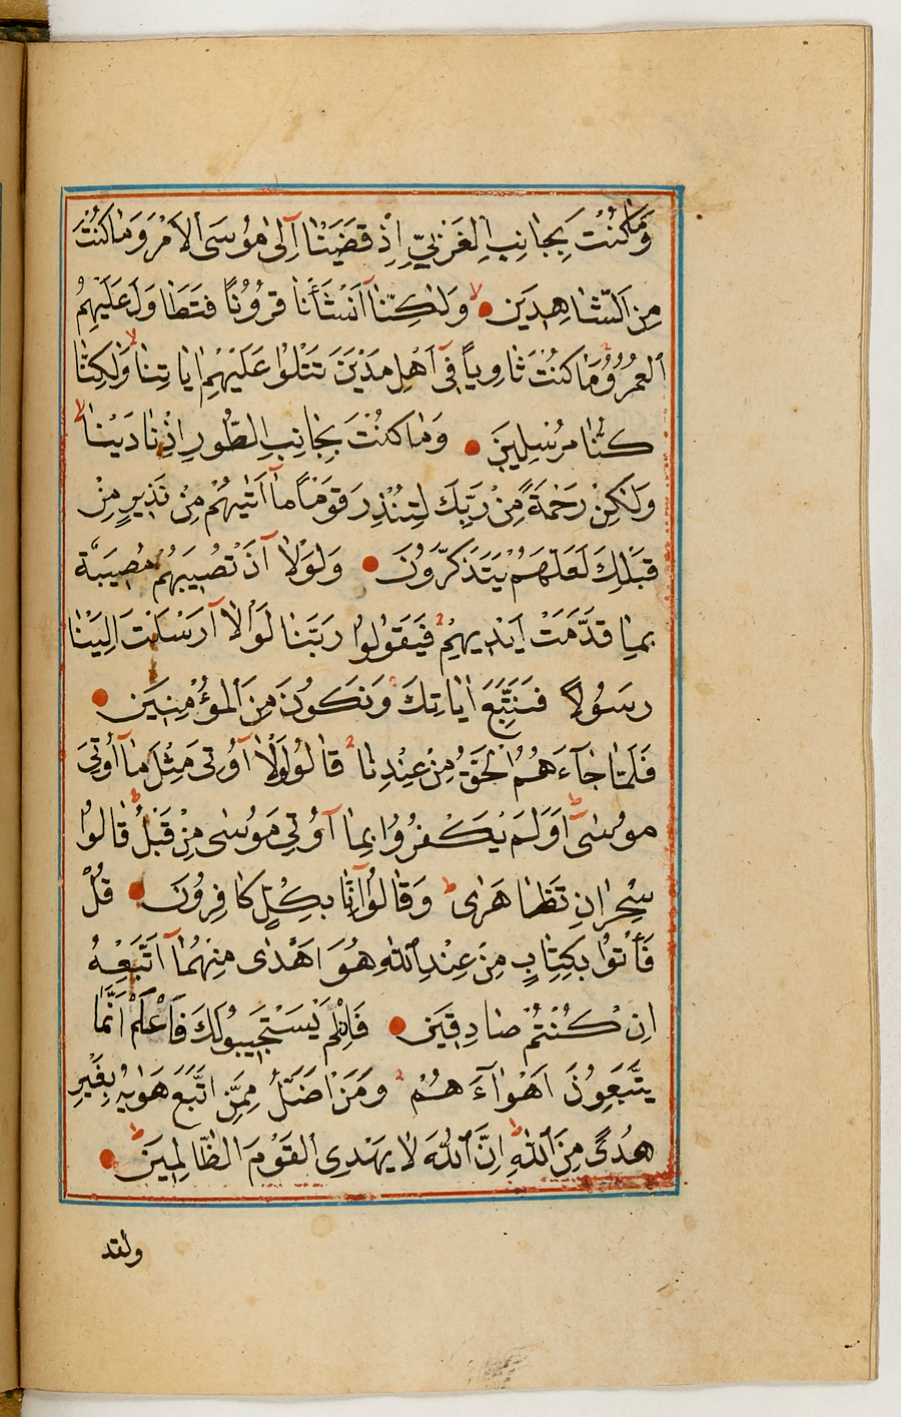 وَمَا كُنْتَ بِجَانِبِ الْغَرْبِيِّ اِذْ قَضَيْنَا اِلٰى مُوسَى الْاَمْرَ وَمَا كُنْتَ
مِنَ الشَّاهِدِينَ ۙ وَلٰكِنَّا اَنْشَأْنَا قُرُونًا فَتَطَاوَلَ عَلَيْهِمُ
الْعُمُرُ ۚ وَمَا كُنْتَ ثَاوِياً فِي اَهْلِ مَدْيَنَ تَتْلُوا عَلَيْهِمْ اٰيَاتِنَا ۙ وَلٰكِنَّا
كُنَّا مُرْسِلِينَ وَمَا كُنْتَ بِجَانِبِ الطُّورِ اِذْ نَادَيْنَا ۙ
وَلٰكِنْ رَحْمَةً مِنْ رَبِّكَ لِتُنْذِرَ قَوْمًا مَا اَتٰيهُمْ مِنْ نَذِيرٍ مِنْ
قَبْلِكَ لَعَلَّهُمْ يَتَذَكَّرُونَ وَلَوْلَا اَنْ تُصِيبَهُمْ مُصِيبَةٌ
بِمَا قَدَّمَتْ اَيْدِيهِمْ فَيَقُولُوا رَبَّنَا لَوْلَا اَرْسَلْتَ اِلَيْنَا
رَسُولًا فَنَتَّبِعَ اٰيَاتِكَ وَنَكُونَ مِنَ الْمُؤْمِنِينَ
فَلَمَّا جَآءَهُمُ الْحَقُّ مِنْ عِنْدِنَا قَالُوا لَوْلَا اُوتِيَ مِثْلَ مَا اُوتِيَ
مُوسٰى ۜ اَوَلَمْ يَكْفُرُوا بِمَا اُوتِيَ مُوسٰى مِنْ قَبْلُ ۚ قَالُوا
سِحْرَانِ تَظَاهَرَا ۗ وَقَالُوا اِنَّا بِكُلٍّ كَافِرُونَ قُلْ
فَأْتُوا بِكِتَابٍ مِنْ عِنْدِ اللّٰهِ هُوَ اَهْدٰى مِنْهُمَا اَتَّبِعْهُ
اِنْ كُنْتُمْ صَادِقِينَ فَاِنْ لَمْ يَسْتَجِيبُوا لَكَ فَاعْلَمْ اَنَّمَا
يَتَّبِعُونَ اَهْوَآءَهُمْ وَمَنْ اَضَلُّ مِمَّنِ اتَّبَعَ هَوٰيهُ بِغَيْرِ
هُدًى مِنَ اللّٰهِ ۗ اِنَّ اللّٰهَ لَا يَهْدِي الْقَوْمَ الظَّالِمِينَ
ولقد